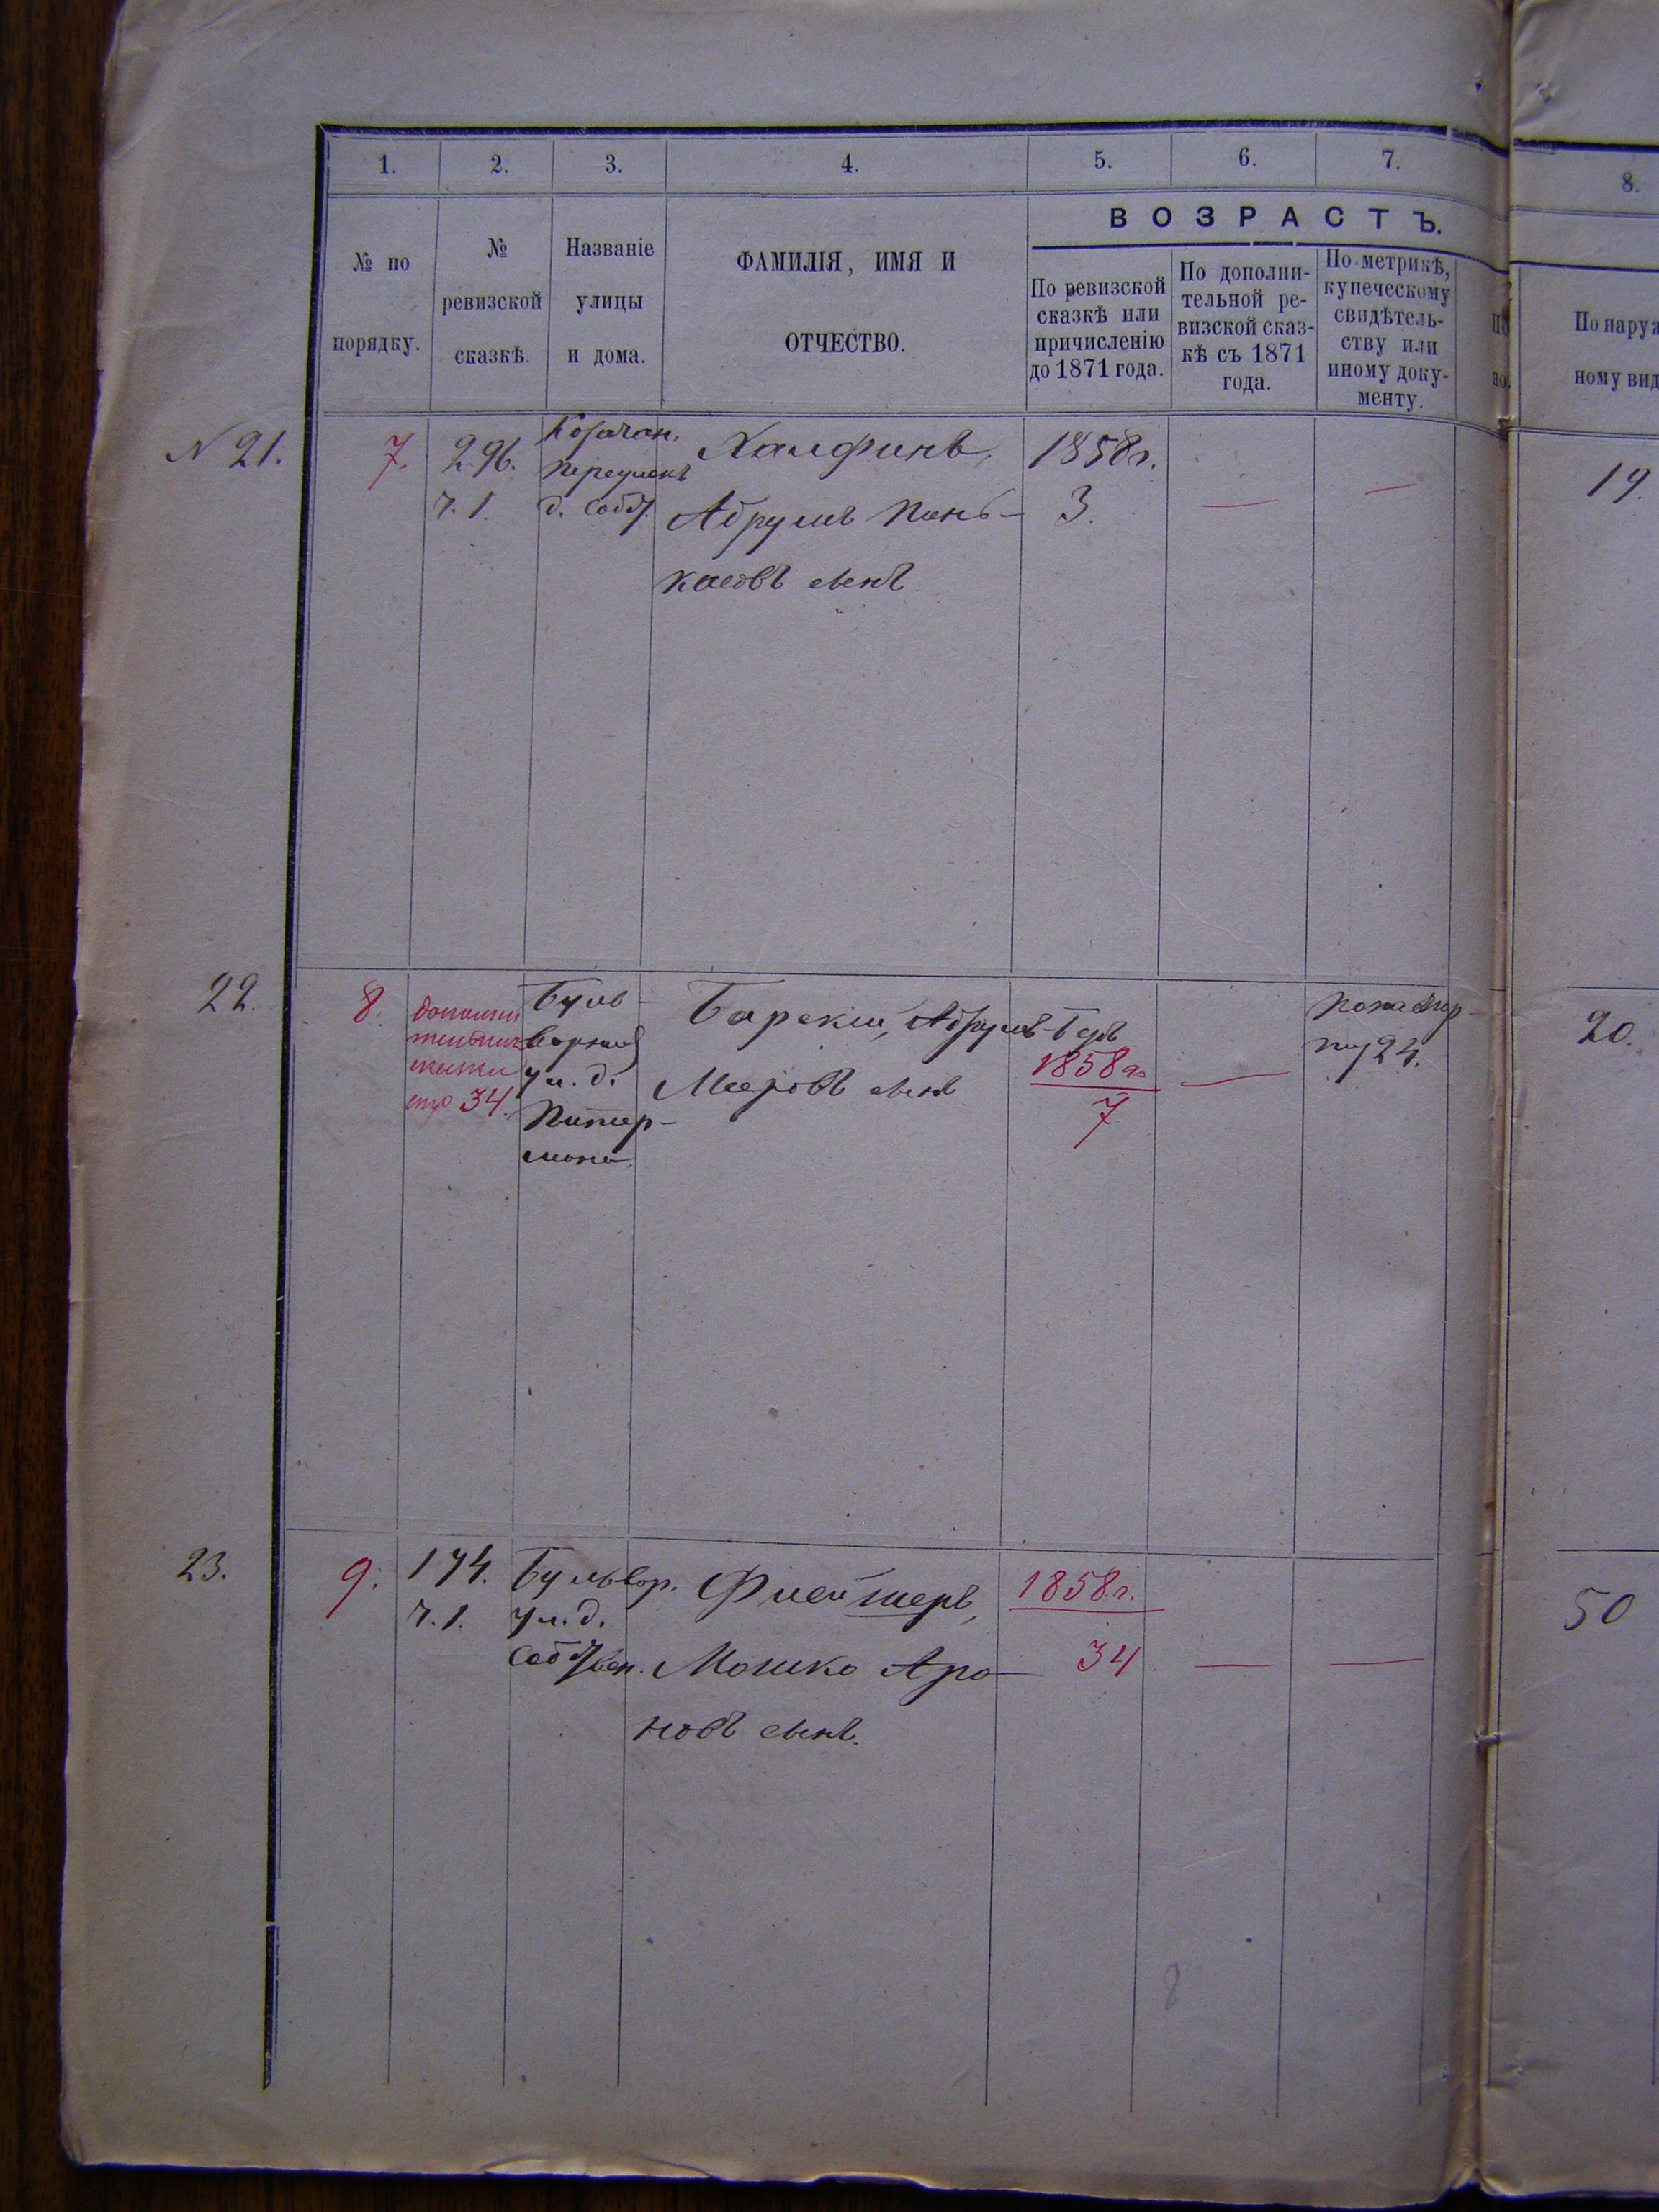 1.
2.
3.
4.
5.
6.
7.
8.
ВОЗРАСТЪ.
№ по
порядку.
№
ревизской
сказкѣ.
Названіе
улицы
и дома.
ФАМИЛІЯ, ИМЯ И
ОТЧЕСТВО.
По ревизской
сказкѣ или
причисленію
до 1871 года.
По дополни-
тельной ре-
визской сказ-
кѣ съ 1871
года.
По метрикѣ,
купеческому
свидѣтель-
ству или
иному доку-
менту.
По наруж
ному вид
N 21.
7.
296.
ч. 1.
переулокъ
д. собст.
Халфинъ,
Абрумъ Пинь-
касовъ сынъ.
1858 г.
3.
—
—
19.
22.
8.
34.
Буль-
варная
ул. д.
Питер-
мана.
Барскій, Абрумъ-Беръ
Мееровъ сынъ
1858 г.
7
—
По паспор-
ту 24.
20.
23.
9.
174.
ч. 1.
Бульвар.
ул. д.
собствен.
Флейшеръ,
Мошко Аро-
новъ сынъ.
1858 г.
34
—
—
50
8